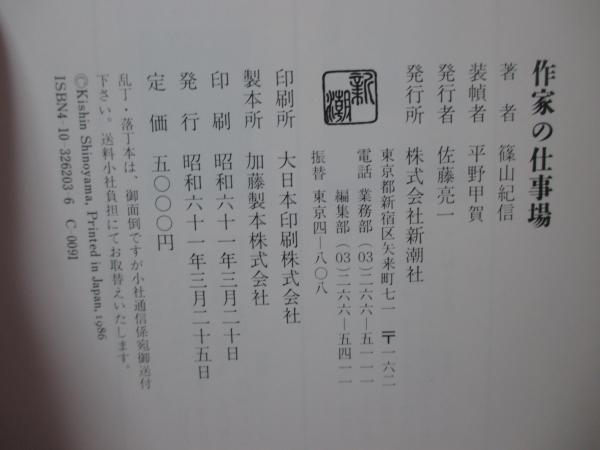 作家の仕事場
著者 篠山紀信
装幀者 平野甲賀
発行者 佐藤亮一
発行所 株式会社新潮社
東京都新宿区矢来町七一 〒一六二
電話 業務部(03)二六六―五一一一
編集部(03)二六六―五四一一
振替 東京四―八〇八
新潮
印刷所 大日本印刷株式会社
製本所 加藤製本株式会社
印刷 昭和六十一年三月二十日
発行 昭和六十一年三月二十五日
定価 五〇〇〇円
乱丁・落丁本は、御面倒ですが小社通信係宛御送付
下さい。送料小社負担にてお取替えいたします。
©Kishin Shinoyama, Printed in Japan, 1986
ISBN4-10-326203-6 C-0091